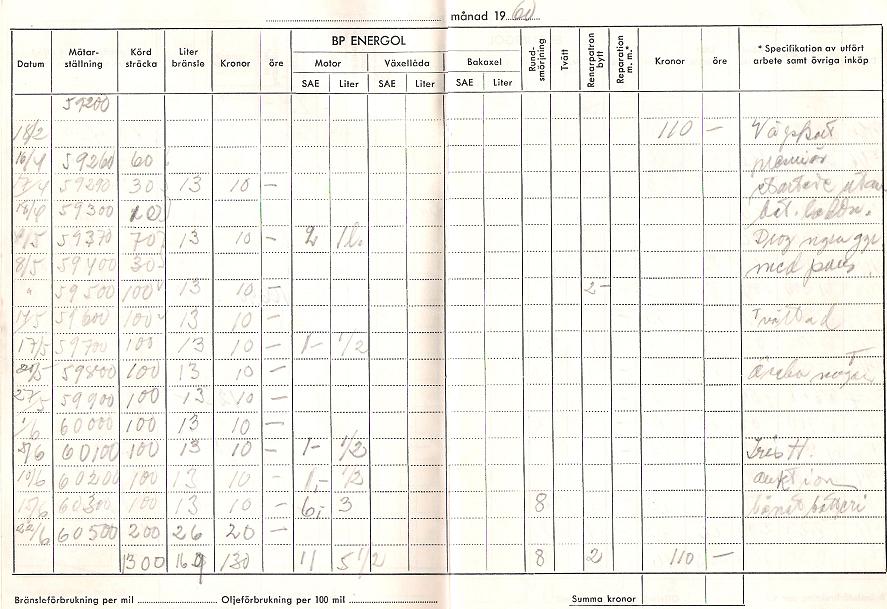 månad 19 60
BP ENERGOL
Datum Mätar-ställning Körd sträcka Liter bränsle Kronor öre Motor Växellåda Bakaxel Rund-smörjning Tvätt Renarpatron bytt Reparation m. m.* Kronor öre * Specifikation av utfört arbete samt övriga inköp
SAE Liter SAE Liter SAE Liter
59200
18/2 110 —
16/4 59260 60 premier
17/4 59290 30 13 10 —
59300 10
59370 70 13 10 — 2 1 l.
8/5 59400 30 med
" 59500 100 13 10 — 2 —
17/5 59600 100 13 10 —
17/5 59700 100 13 10 — 1- 1/2
59800 100 13 10 —
27/5 59900 100 13 10 —
1/6 60000 100 13 10 —
60100 100 13 10 — 1- 1/2
10/6 60200 100 13 10 — 1,- 1/2 auktion
15/6 60300 100 13 10 — 6,- 3 8 batteri
22/6 60500 200 26 20 —
1300 169 130 11 5 1/2 8 2 110 —
Bränsleförbrukning per mil Oljeförbrukning per 100 mil Summa kronor